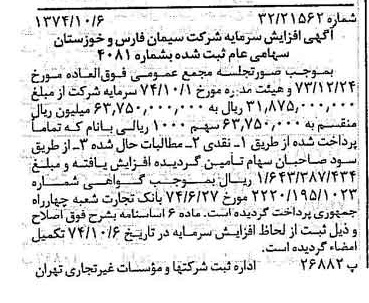 شماره ۳۲/۲۱۵۶۲ ۱۳۷۴/۱۰/۶
آگهی افزایش سرمایه شرکت سیمان فارس و خوزستان
سهامی عام ثبت شده بشماره ۴۰۸۱
بموجب صورتجلسه مجمع عمومی فوق‌العاده مورخ
۷۳/۱۲/۲۴ و هیئت مدیره مورخ ۷۴/۱۰/۱ سرمایه شرکت از مبلغ
۳۱,۸۷۵,۰۰۰,۰۰۰ ریال به ۶۳,۷۵۰,۰۰۰,۰۰۰ میلیون ریال
منقسم به ۶۳,۷۵۰,۰۰۰ سهم ۱۰۰۰ ریالی بانام که تماماً
پرداخت شده از طریق ۱ـ نقدی ۲ـ مطالبات حال شده ۳ـ از طریق
سود صاحبان سهام تأمین گردیده افزایش یافته و مبلغ
۱/۶۴۳/۳۸۷/۴۳۴ ریال بموجب گواهی شماره
۲۲۲۰/۱۹۵/۱۰۲۳ مورخ ۷۴/۶/۲۷ بانک تجارت شعبه چهارراه
جمهوری پرداخت گردیده است. ماده ۶ اساسنامه بشرح فوق اصلاح
و ذیل ثبت از لحاظ افزایش سرمایه در تاریخ ۷۴/۱۰/۶ تکمیل
امضاء گردیده است.
پ ۲۶۸۸۲ اداره ثبت شرکتها و مؤسسات غیرتجاری تهران